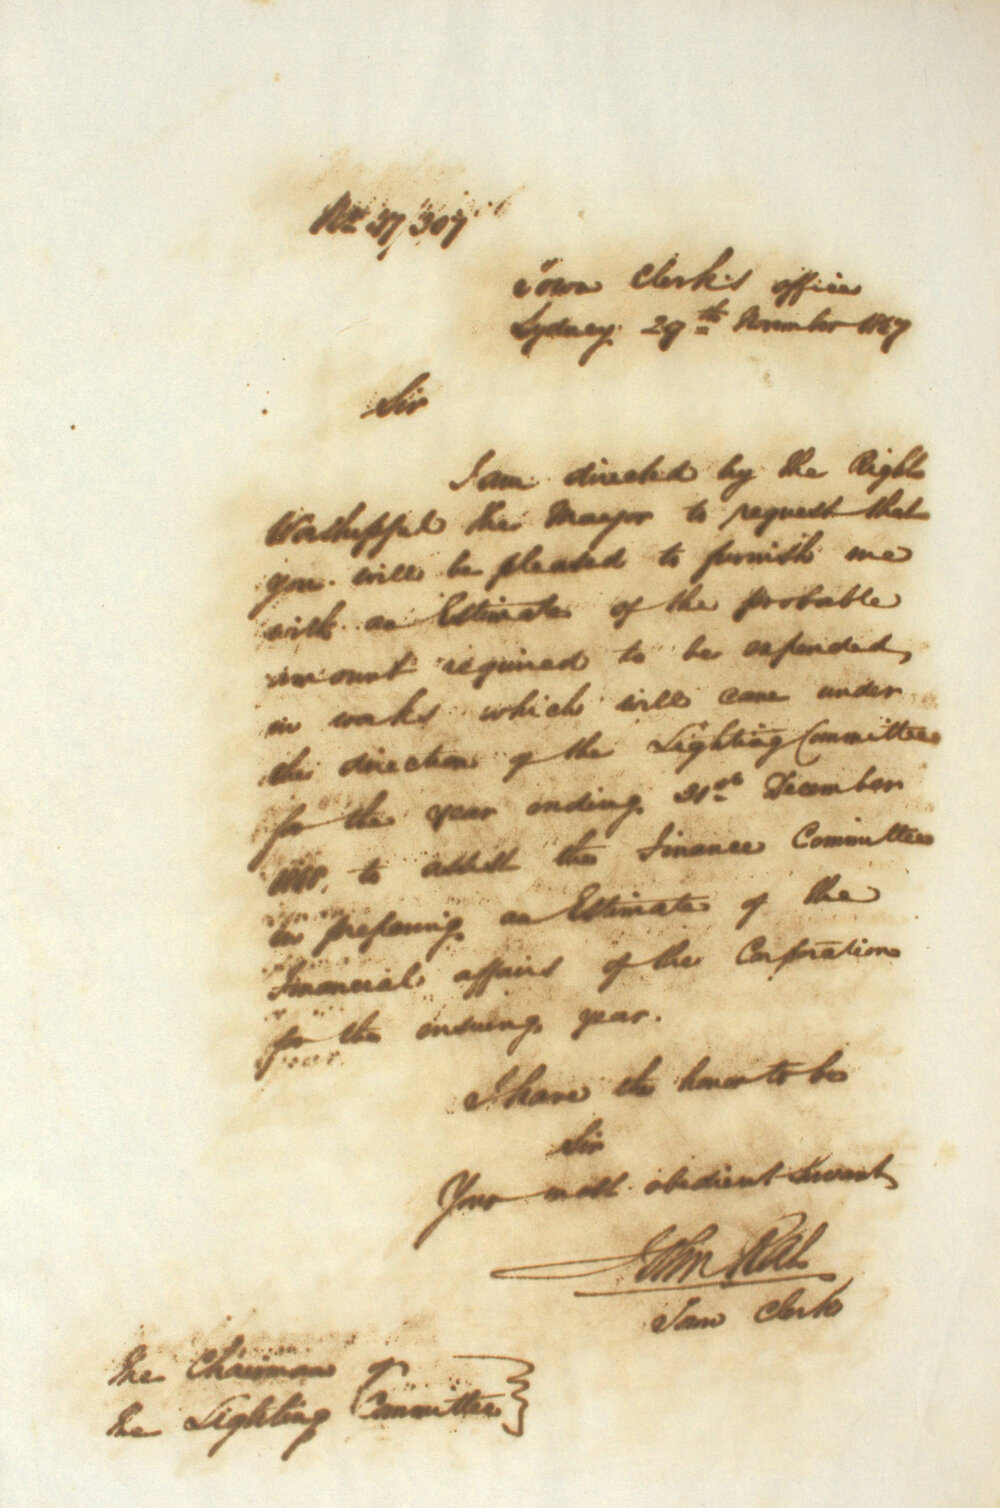 No 37/307
Town Clerk's office
Sydney 29th November 1847
Sir
I am directed by the Right
Worshipful the Mayor to request that
you will be pleased to furnish me
with an Estimate of the probable
amount required to be expended,
in works which will come under
the direction of the Lighting Committee
for the year ending 31st December
1848, to assist the Finance Committee
in preparing an Estimate of the
Financial affairs of the Corporation
for the ensuing year.
I have the honor to be
Sir
Your most obedient Servant,
John Rae
Town Clerk
The Chairman of
the Lighting Committee